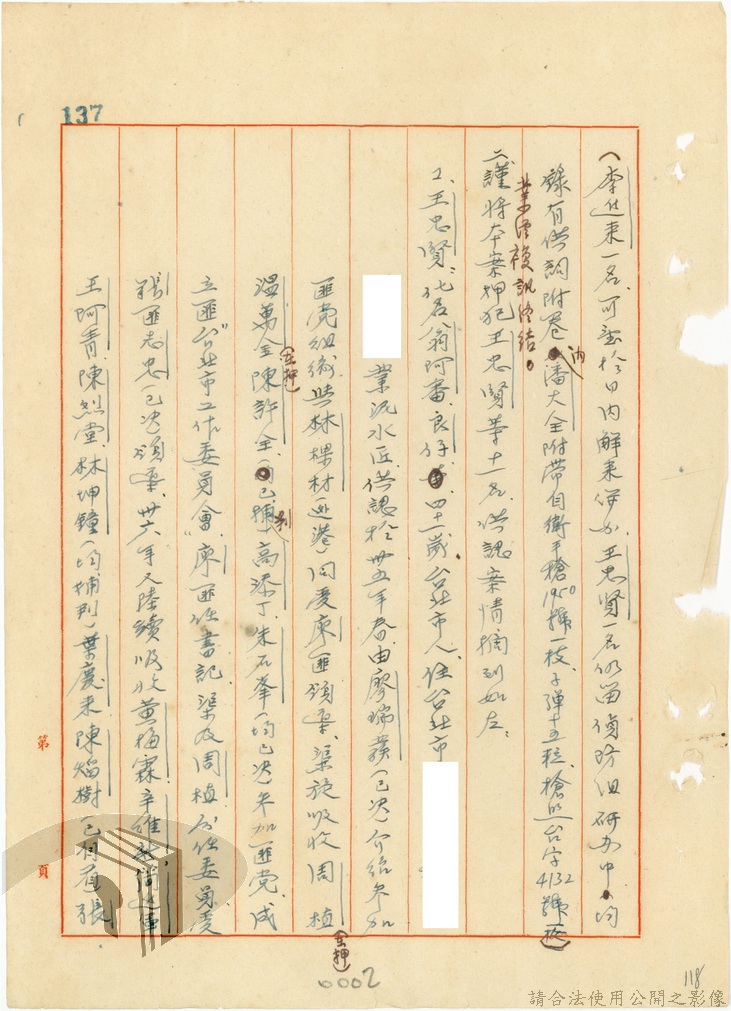 137
(李進來一名,可望於日內解来併办,王忠賢一名仍留偵防组研办中,均
錄有供詞附卷內)潘大全附帶自衛手槍1950號一枝,子彈十五粒,槍照台字4132號一
業經複訊終結。
二、謹將本案押犯王忠賢等十一名供認案情摘列如左:
1.王忠賢,化名翁阿番、良仔,四十一歲,台北市人,住台北市
業泥水匠,供認於卅五年春,由廖瑞發(已決)介紹參加
匪党组織,與林樑材(逃港)同受廖匪領導,渠旋吸收周植
(在押)
温萬金、陳許全(已捕)高添丁、朱石峯(均已決)參加匪党,成
(在押)
立匪"台北市工作委員會",廖匪任書記,渠及周植分任委員,受
張匪志忠(已決)領導,卅六年又陸續吸收黃梅霖、辛
王阿青、陳烈堂、林坤鐘(均捕判)葉慶来、陳焰樹(已捕
第
頁
0002
118
請合法使用公開之影像